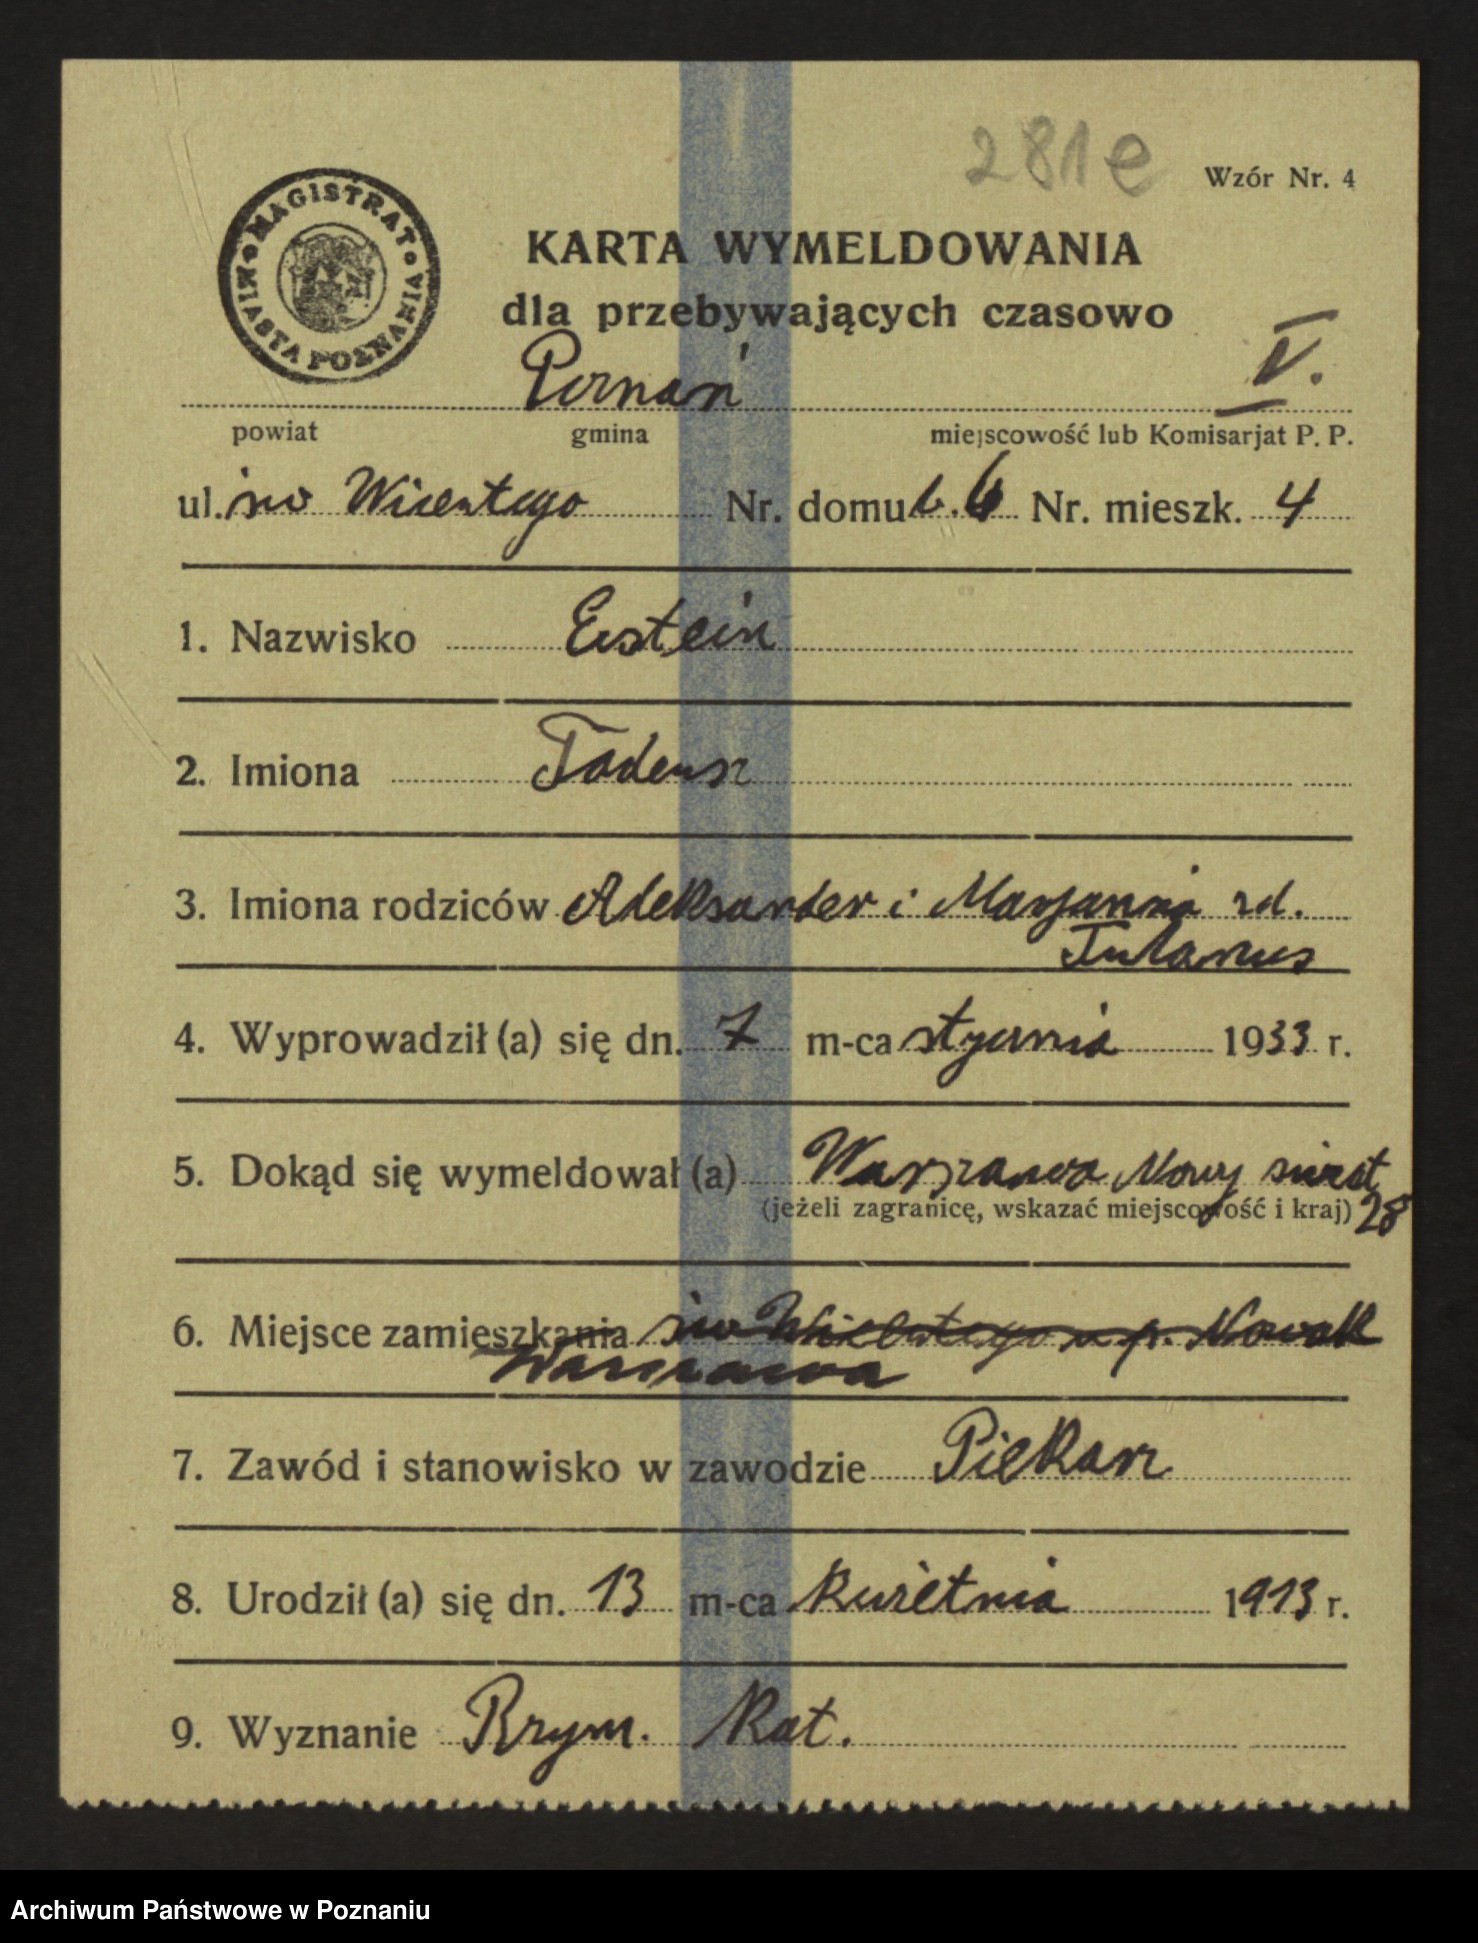 281e
Wzór Nr. 4
MAGISTRAT MIASTA POZNANIA
KARTA WYMELDOWANIA
dla przebywających czasowo
Poznań V.
powiat gmina miejscowość lub Komisarjat P. P.
ul. św Wicentego Nr. domu 6 Nr. mieszk. 4
1. Nazwisko Estein
2. Imiona Tadeusz
3. Imiona rodziców Aleksander i Marjanna zd.
4. Wyprowadził (a) się dn. 7 m-ca stycznia 1933 r.
5. Dokąd się wymeldował (a) Warszawa Nowy świat
(jeżeli zagranicę, wskazać miejscowość i kraj) 28
6. Miejsce zamieszkania św Wicentego u p. Nowak
Warszawa
7. Zawód i stanowisko w zawodzie Piekarz
8. Urodził (a) się dn. 13 m-ca kwietnia 1913 r.
9. Wyznanie Rzym. Kat.
Archiwum Państwowe w Poznaniu